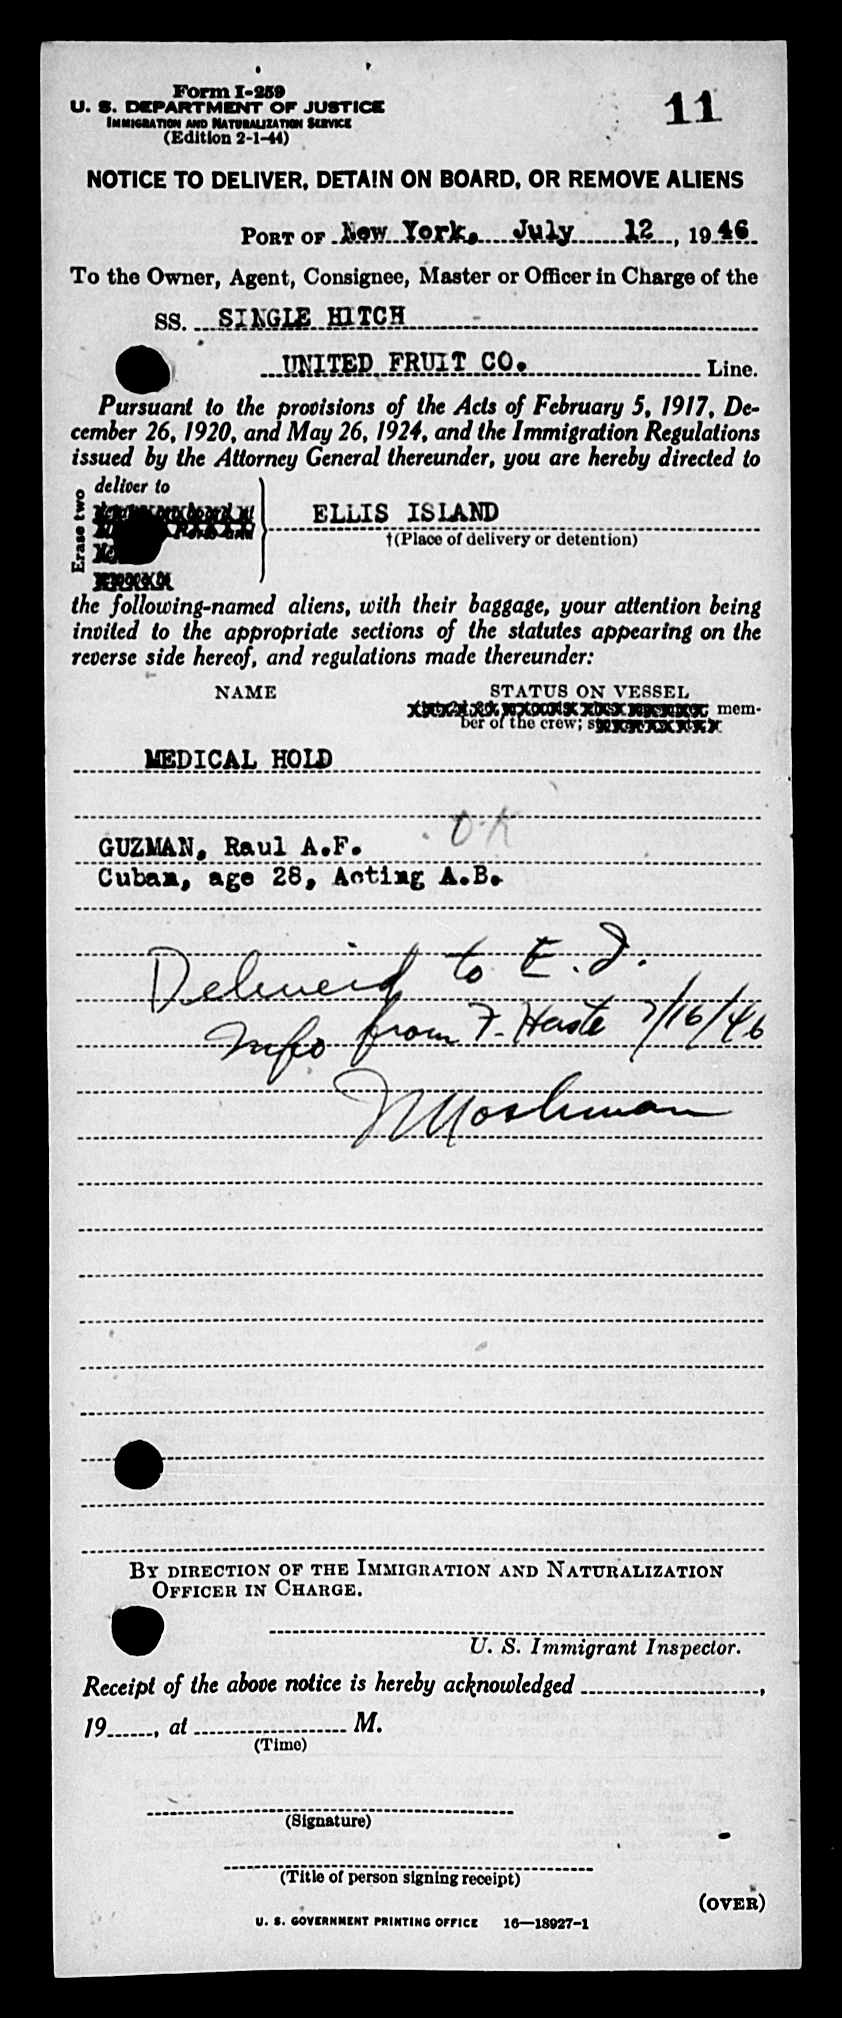 Form I-259
U. S. DEPARTMENT OF JUSTICE
IMMIGRATION AND NATURALIZATION SERVICE
(Edition 2-1-44)
11
NOTICE TO DELIVER, DETAIN ON BOARD, OR REMOVE ALIENS
PORT OF New York, July 12, 1946
To the Owner, Agent, Consignee, Master or Officer in Charge of the
SS. SINGLE HITCH
UNITED FRUIT CO. Line.
Pursuant to the provisions of the Acts of February 5, 1917, De-
cember 26, 1920, and May 26, 1924, and the Immigration Regulations
issued by the Attorney General thereunder, you are hereby directed to
Erase two
deliver to
ELLIS ISLAND
†(Place of delivery or detention)
the following-named aliens, with their baggage, your attention being
invited to the appropriate sections of the statutes appearing on the
reverse side hereof, and regulations made thereunder:
NAME STATUS ON VESSEL
mem-
ber of the crew;
MEDICAL HOLD
O-K
GUZMAN, Raul A.F.
Cuban, age 28, Acting A.B.
Delivered to E. I.
Info from F. Haste 7/16/46
Moshman
BY DIRECTION OF THE IMMIGRATION AND NATURALIZATION
OFFICER IN CHARGE.
U. S. Immigrant Inspector.
Receipt of the above notice is hereby acknowledged ,
19 , at M.
(Time)
(Signature)
(Title of person signing receipt)
(OVER)
U. S. GOVERNMENT PRINTING OFFICE 16—18927-1